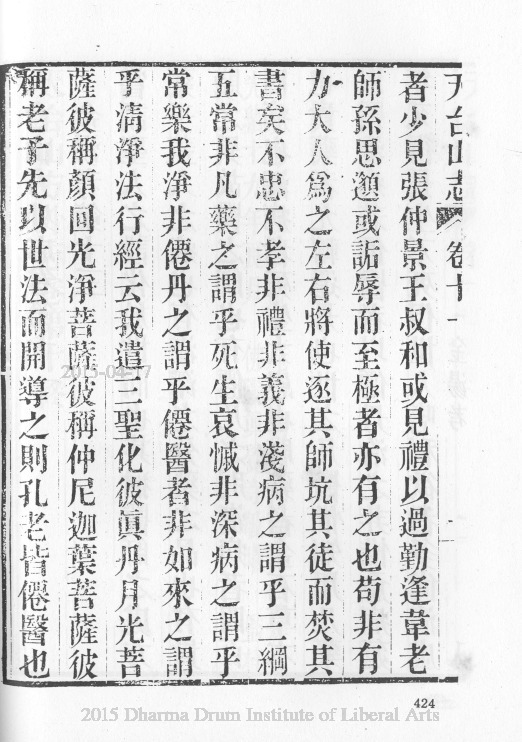 天台山志　卷十一
者少見張仲景王叔和或見禮以過勤逢韋老
師孫思邈或詬辱而至極者亦有之也苟非有
力大人爲之左右將使逐其師坑其徒而焚其
書矣不忠不孝非禮非義非淺病之謂乎三綱
五常非凡藥之謂乎死生哀慽非深病之謂乎
常樂我淨非僊丹之謂乎僊醫者非如來之謂
乎淸淨法行經云我遣三聖化彼眞丹月光菩
薩彼稱顏回光淨菩薩彼稱仲尼迦葉菩薩彼
稱老子先以世法而開導之則孔老皆僊醫也
424
2015-04-17
2015 Dharma Drum Institute of Liberal Arts